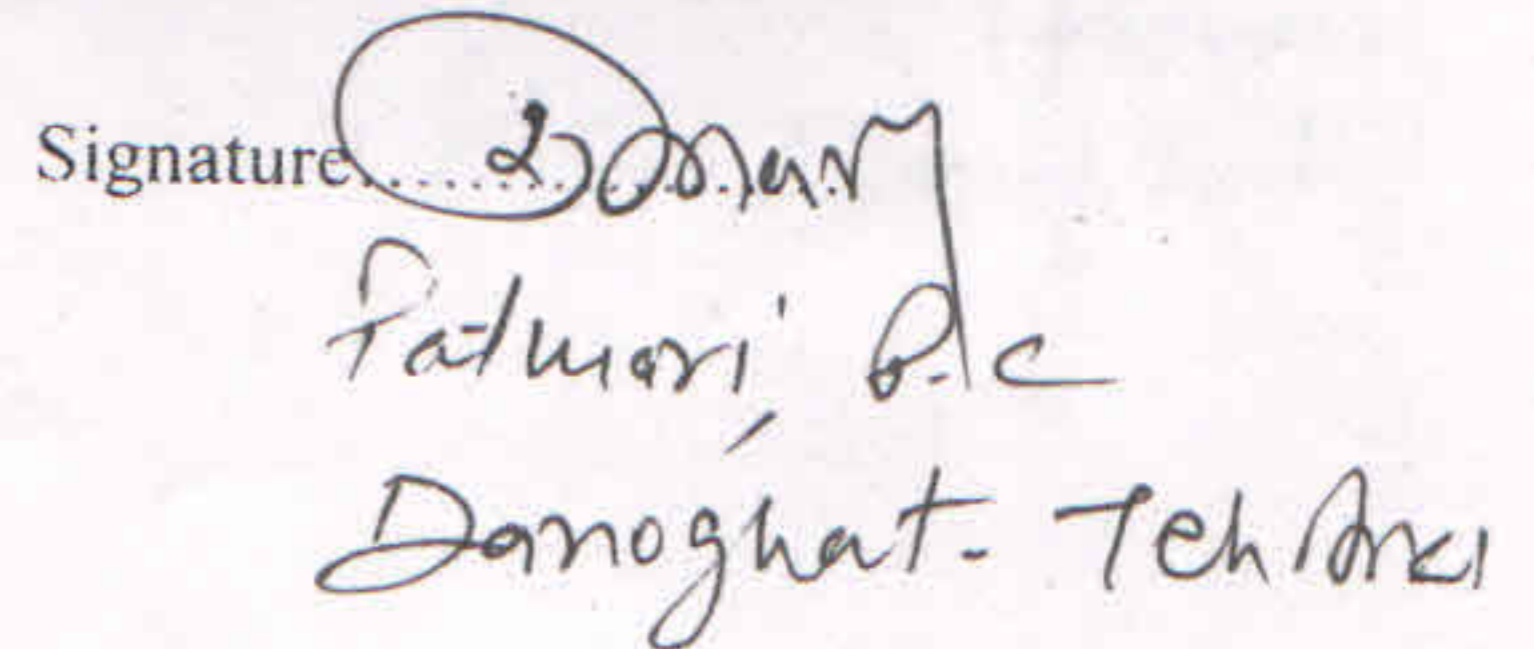 Signature
Patwari P.C
Danoghat- Teh Arki